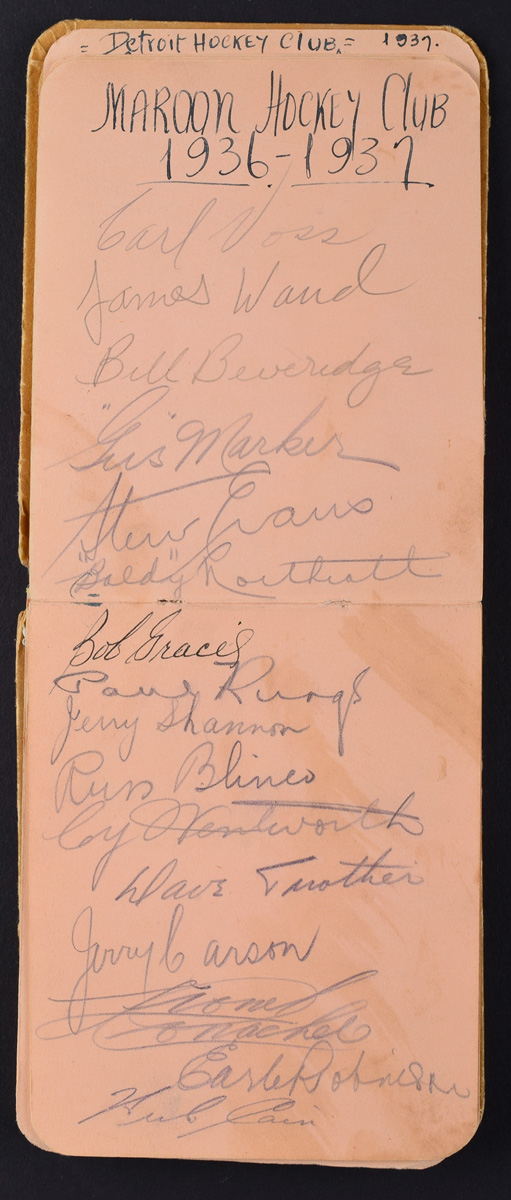 = Detroit HOCKEY CLUB. = 1937.
MAROON HOCKEY CLUB
1936-1937
Carl Voss
James Ward
Bill Beveridge
"Gus" Marker
Stew Evans
"Baldy" Northcott
Bob Gracie
Paul Runge
Jerry Shannon
Russ Blinco
Cy Wentworth
Dave Trottier
Jerry Carson
Lionel
Conacher
Earle Robinson
Herb Cain